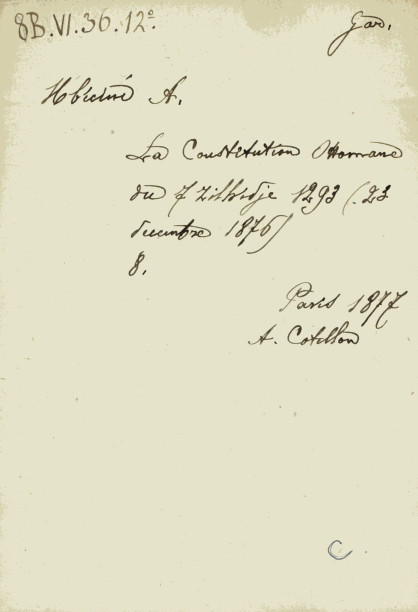 8B.VI.36.12°.
Gar.
Ubicini A.
La Constitution Ottomane
du 7 zilhidje 1293 (.23
decembre 1876)
8.
Paris 1877
A. Cotillon
C